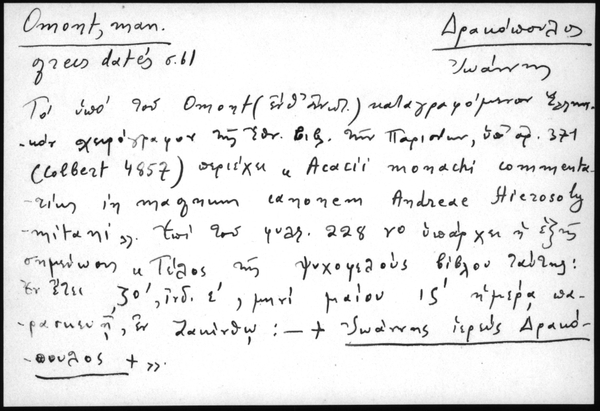 Omont, man. Δρακόπουλος
grecs datés σ. 61 Ἰωάννης
Τό ὑπό τοῦ Omont (ἐνθ' ἀνωτ.) καταγραφόμενον Ἑλλην-
-κόν χειρόγραφον τῆς Ἐθν. Βιβ. τῶν Παρισίων, ὑπ' ἀρ. 371
(Colbert 4857) περιέχει « Acacii monachi commenta-
-rius in magnum canonem Andreae Hierosoly
-mitani ». Ἐπί τοῦ φυλ. 228 vo ὑπάρχει ἡ ἑξῆς
σημείωσις « Τέλος τῆς ψυχοφελοῦς βίβλου ταύτης:
Ἐν ἔτει ζο', ἰνδ. ε', μηνί μαΐου ιϛ' ἡμέρᾳ πα-
-ρασκευῇ, ἐν Ζακίνθῳ : — + Ἰωάννης ἱερεύς Δρακό-
-πουλος + ».